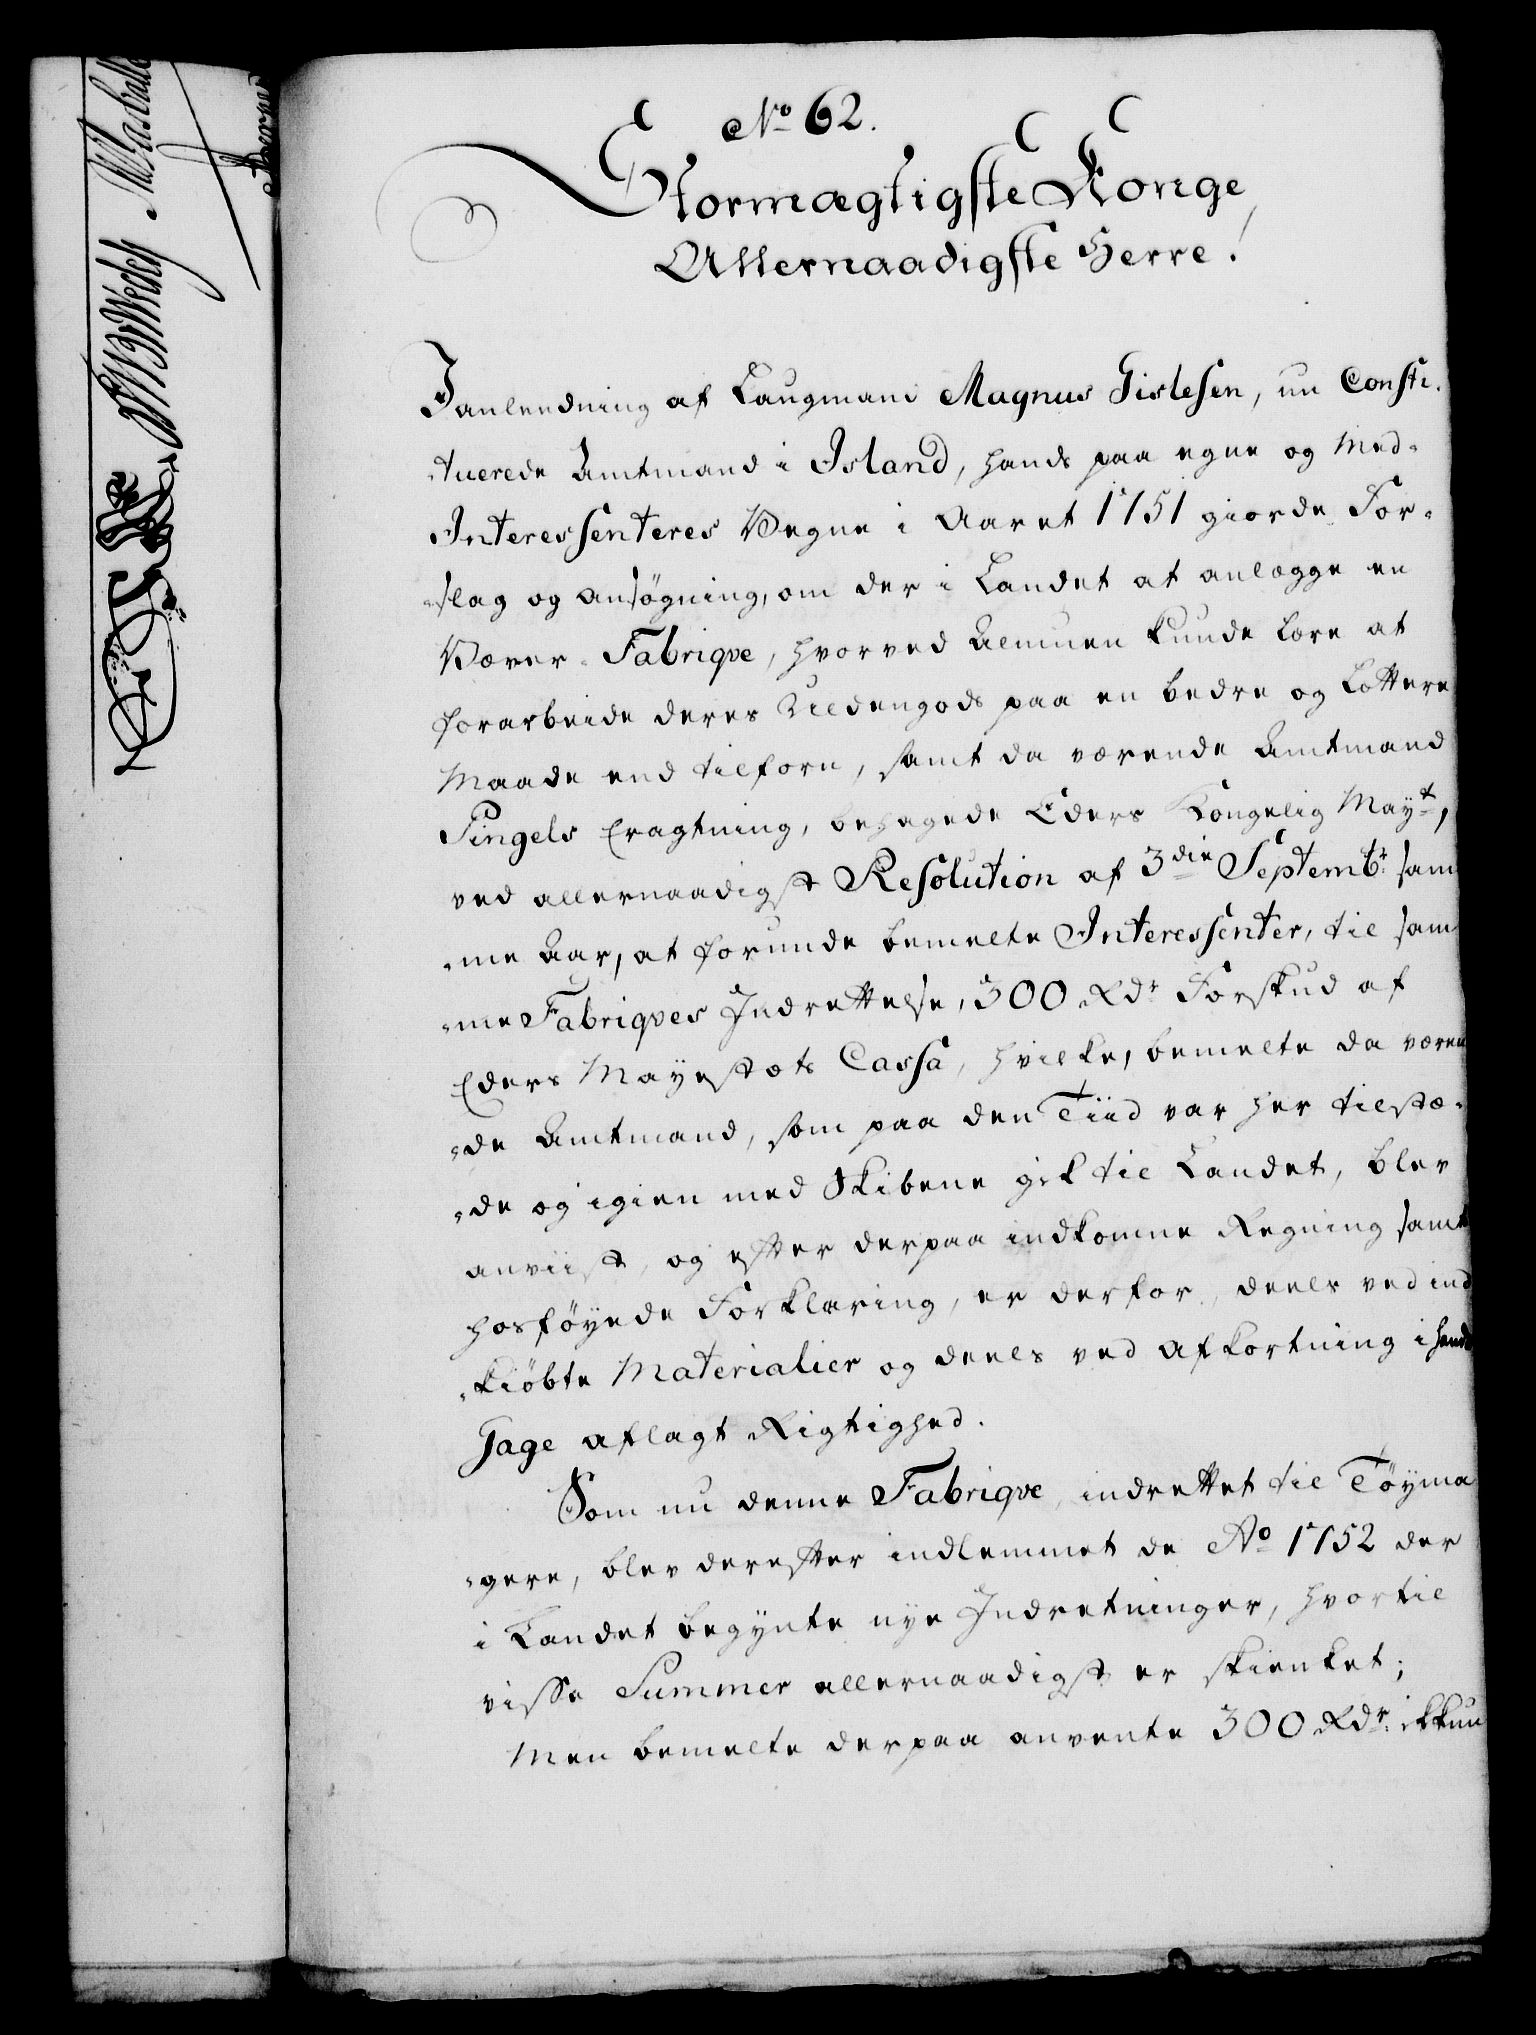 No 62.
Stormægtigste Konge
Allernaadigste Herre!
I anledning af Laugmand Magnus Gislesen, nu Consti-
-tuerede Amtmand i Island, hands paa egne og Med-
Interessenteres Vegne i Aaret 1751 giorde For-
-slag og ansøgning, om der i Landet at anlægge en
Væver-Fabriqve, hvorved Almuen kunde lære at
forarbeide deres Uldengods paa en bedre og lættere
Maade end tilforn, samt da værende Amtmand
Pingels Eragtning, behagede Eders Kongelig Mayt,
ved allernaadigst Resolution af 3die Septembr: sam
-me Aar, at forunde bemelte Interessenter, til sam
-me Fabriqves Indrettelse, 300 Rdr Forskud af
Eders Mayestæts Cassa, hvilke, bemelte da væren
-de Amtmand, som paa den Tiid var her tilstæ-
-de og igien med Skibene gik til Landet, blev
anviist, og efter derpaa indkomne Regning samt
hosføyede Forklaring, er derfor, deels ved ind
-kiøbte Materialier og deels ved afkortning i hands
Gage aflagt Rigtighed.
Som nu denne Fabriqve, indrettet til Tøyma
-gere, blev derefter indlemmet de Ao 1752 der
i Landet begynte nye Indretninger, hvortil
visse Summer allernaadigst er skienket;
Men bemelte derpaa anvente 300 Rdr: ikkun